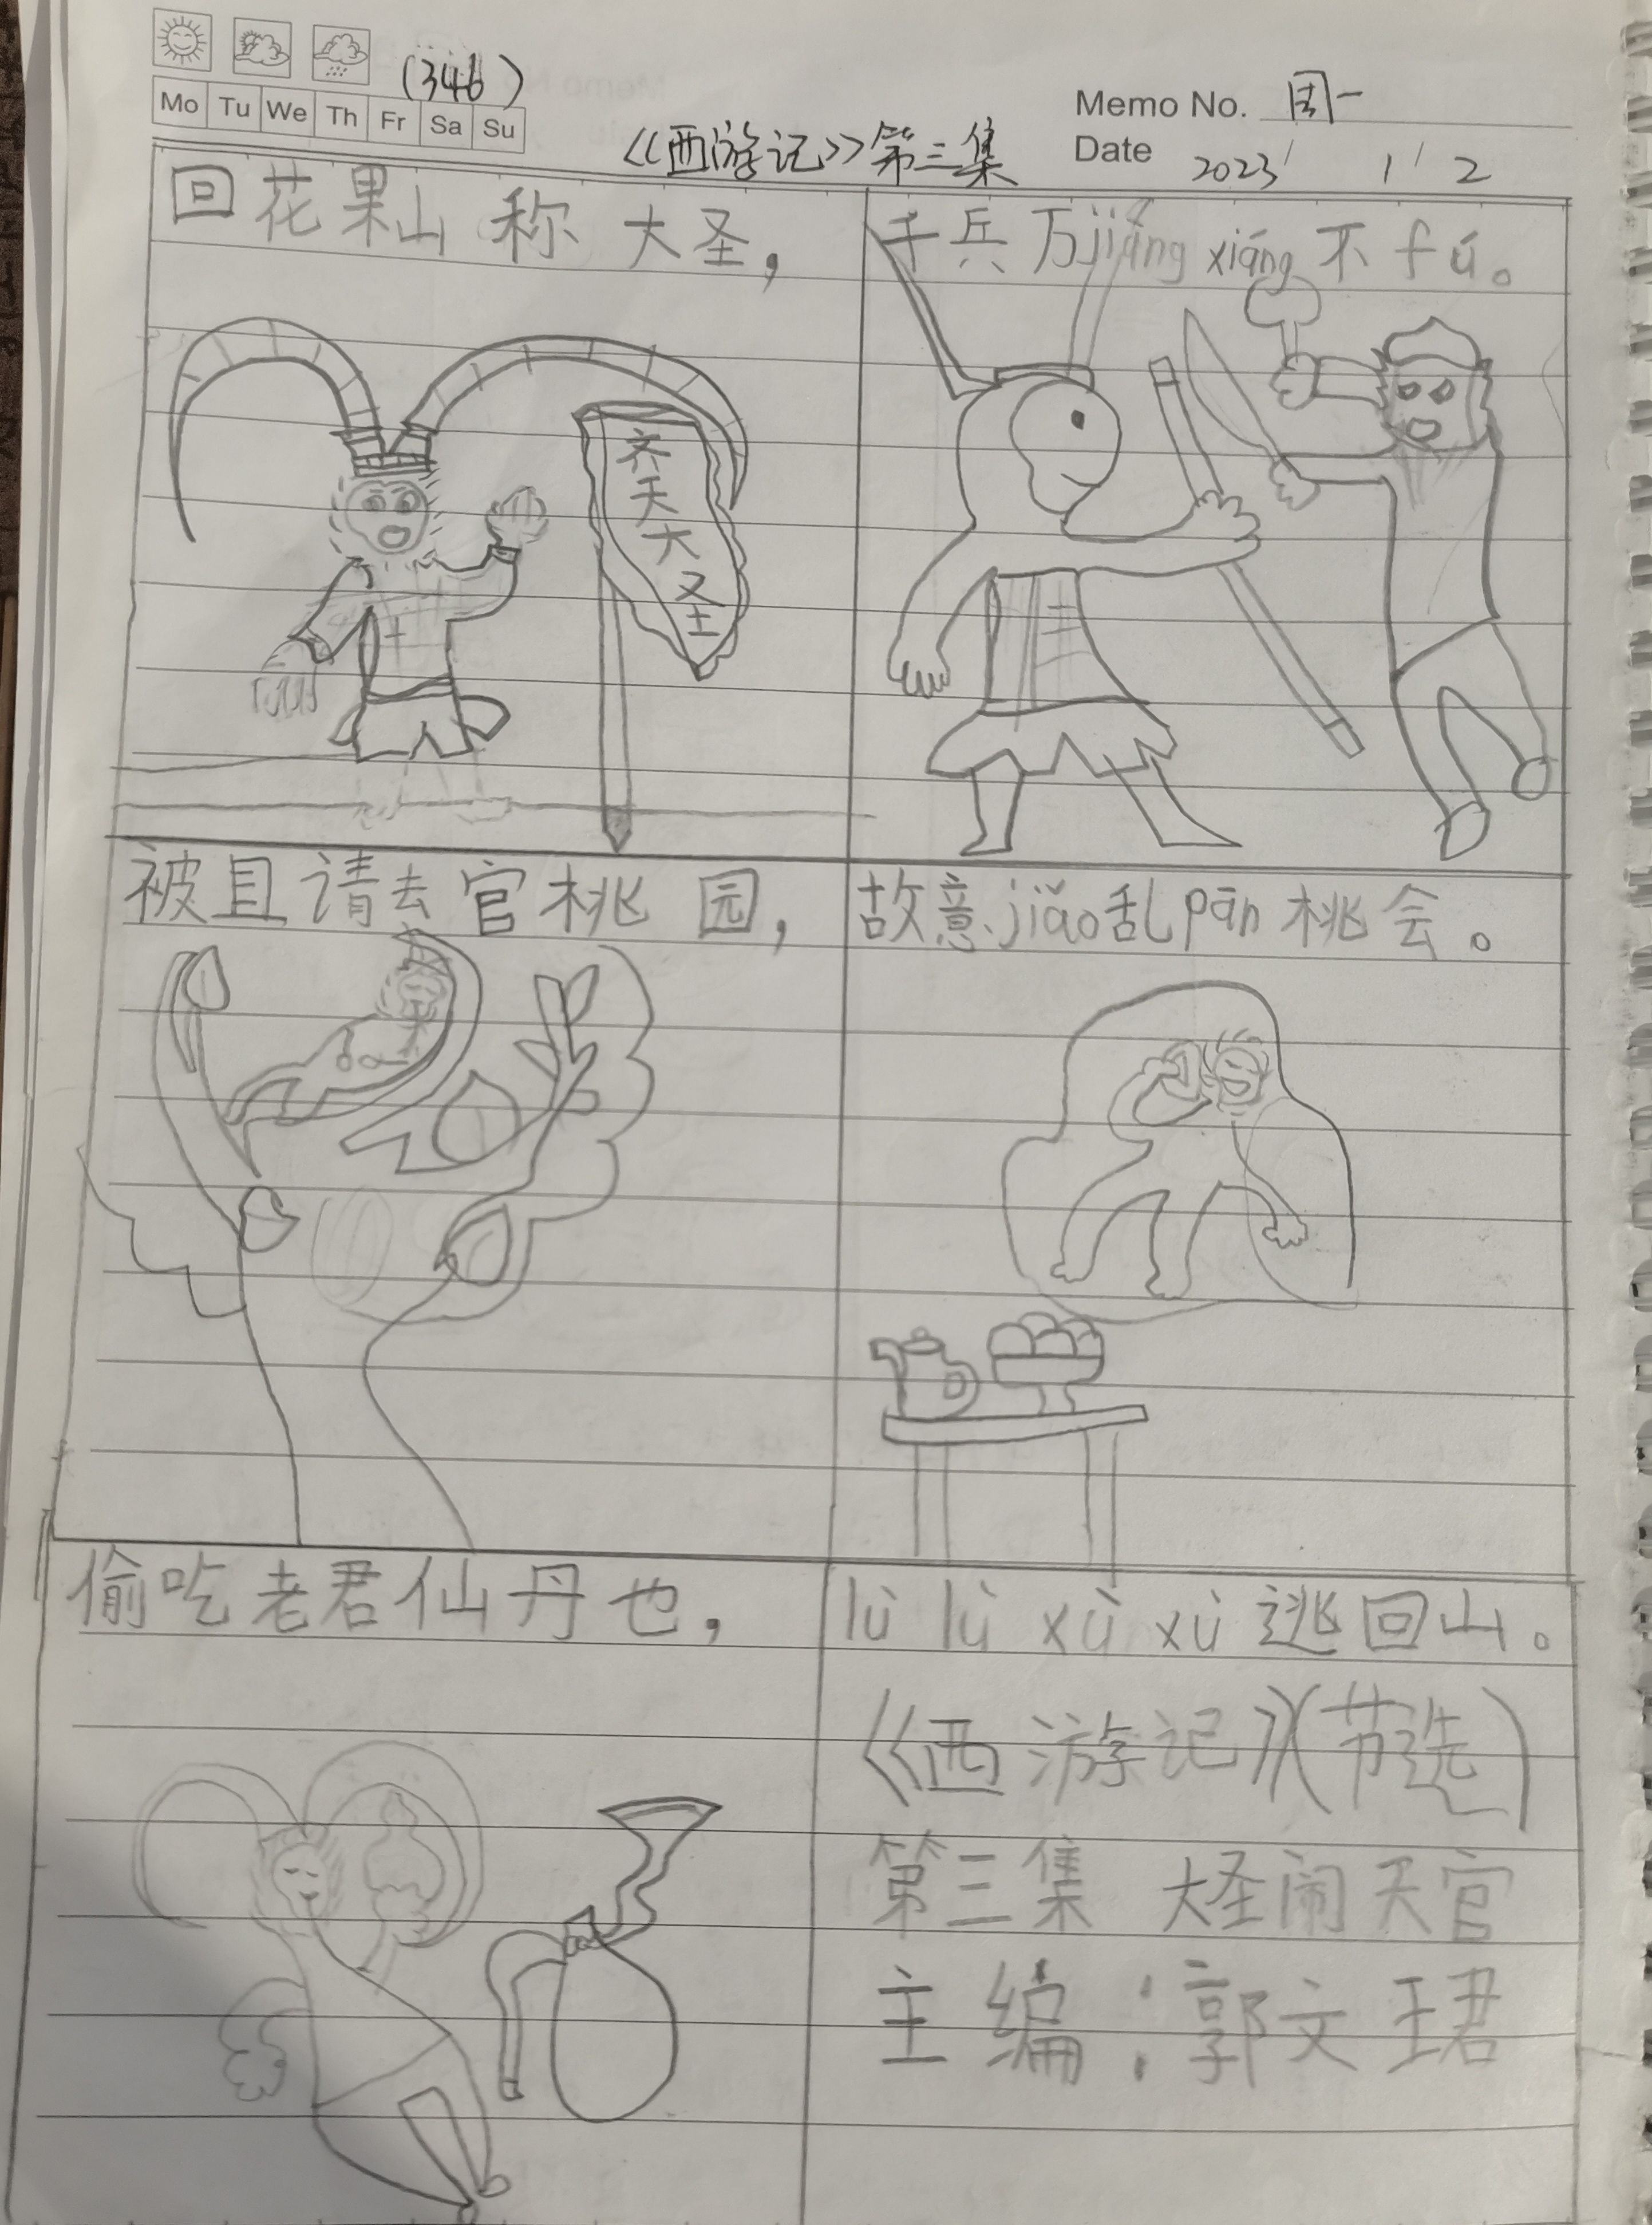 (346)
Mo Tu We Th Fr Sa Su
Memo No. 周一
《西游记》第三集
Date 2023 / 1 / 2
回花果山称大圣，
千兵万jiàng xiáng不fú。
齐天大圣
被且请去官桃园，
故意jiǎo乱pān桃会。
偷吃老君仙丹也，
lù lù xù xù逃回山。
《西游记》(节选)
第三集 大圣闹天官
主编：郭文珺